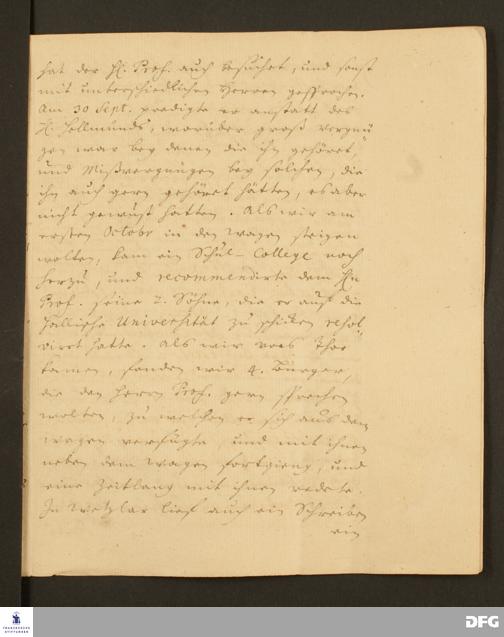 hat der H. Prof. auch besuchet, und sonst
mit unterschiedlichen Herren gesprochen.
Am 30 Sept. predigte er anstatt des
H. Hellmunds, worüber groß Vergnü
gen war bey denen die ihn gehöret,
und Mißvergnügen bey solchen, die
ihn auch gern gehöret hätten, es aber
nicht gewust hatten. Als wir am
ersten Octobr in den Wagen steigen
wolten, kam ein Schul-College noch
herzu, und recommendirte dem Hn
Prof. seine 2. Söhne, die er auf die
Hallische Universität zu schicken resol
virt hatte. Als wir vors Thor
kamen, fanden wir 4. Bürger,
die den Herrn Prof. gern sprechen
wolten, zu welchen er sich aus dem
Wagen verfügte, und mit ihnen
neben dem Wagen fortgieng, und
eine Zeitlang mit ihnen redete.
In Wetzlar lief auch ein Schreiben
ein
FRANCKESCHE STIFTUNGEN
DFG